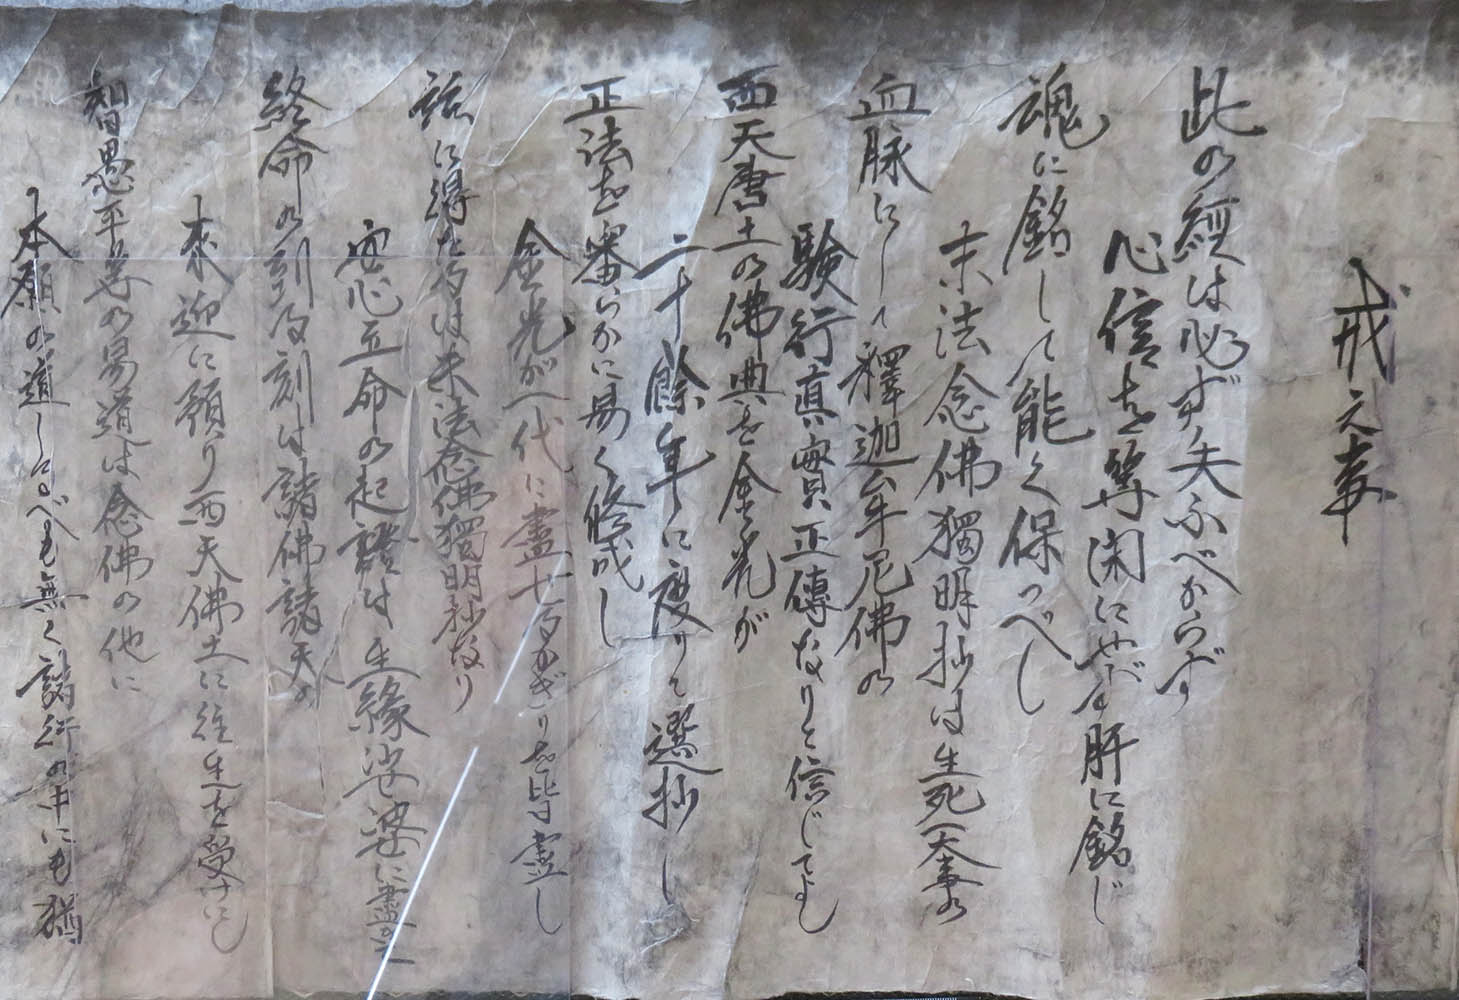 戒之事
此の經は必ず失ふべからず
心信を篤閑にせず肝に銘じ
魂に銘して能く保つべし
末法念佛獨明抄は生死一大事の
血脉にして釋迦牟尼佛の
驗行真實正傳なりと信じてよし
西天唐土の佛典を金光が
二十餘年に度りて選抄し
正法を審らかに易く修成し
金光が一代に盡せるかぎりを皆盡し
茲に得たるは末法念佛獨明抄なり
安心立命の起證は生縁娑婆に盡
終命の到る刻は諸佛諸天の
来迎に預り西天佛土に往生を受けにし
智愚平等の易道は念佛の他に
本願の道しるべも無く諸行の中にも猶